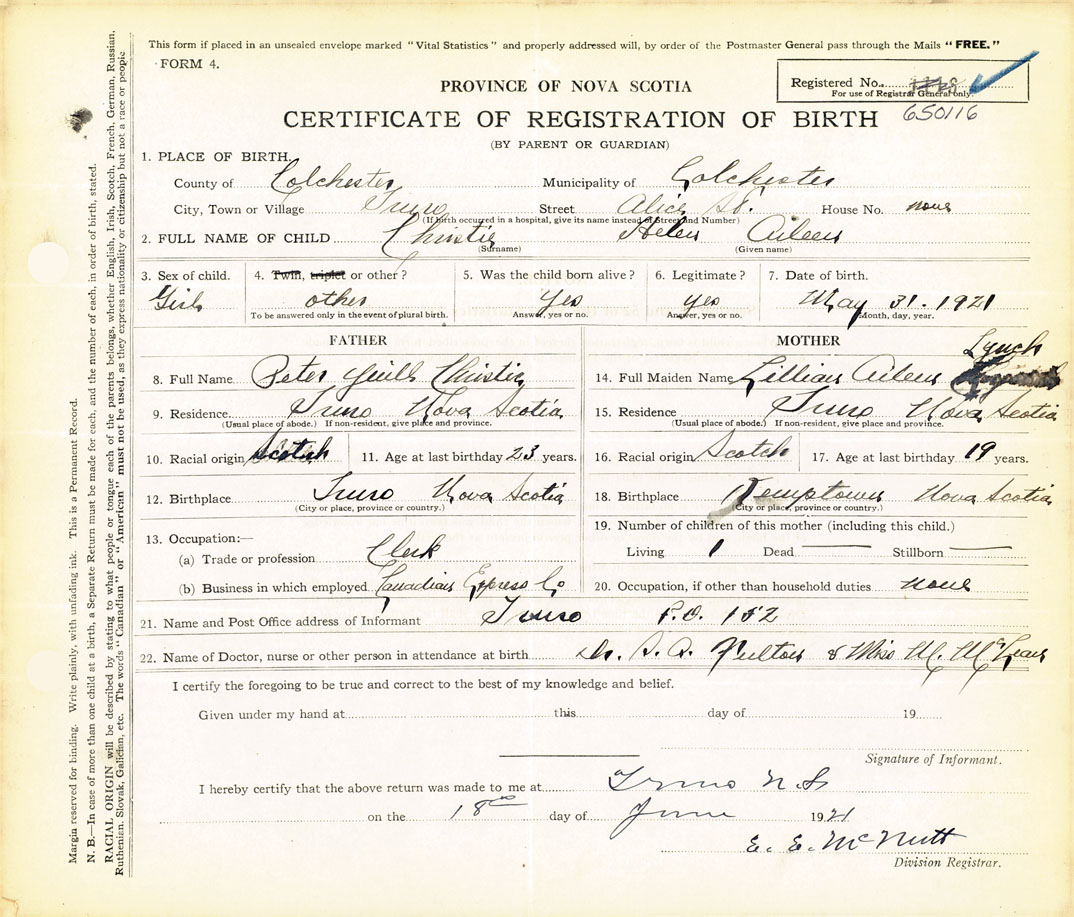 This form if placed in an unsealed envelope marked "Vital Statistics" and properly addressed will, by order of the Postmaster General pass through the Mails "FREE."
FORM 4.
Registered No.
For use of Registrar General only.
650116
PROVINCE OF NOVA SCOTIA
CERTIFICATE OF REGISTRATION OF BIRTH
(BY PARENT OR GUARDIAN)
1. PLACE OF BIRTH.
County of Colchester Municipality of Colchester
City, Town or Village Truro Street Alice St. House No. none
(If birth occurred in a hospital, give its name instead of Street and Number)
2. FULL NAME OF CHILD Christie Helen Aileen
(Surname) (Given name)
3. Sex of child. 4. Twin, triplet or other? 5. Was the child born alive? 6. Legitimate? 7. Date of birth.
Girl other Yes yes May 31. 1921
To be answered only in the event of plural birth. Answer, yes or no. Answer, yes or no. Month, day, year.
FATHER MOTHER
Lynch
8. Full Name Peter Yuill Christie 14. Full Maiden Name Lillian Aileen
9. Residence Truro Nova Scotia 15. Residence Truro Nova Scotia
(Usual place of abode.) If non-resident, give place and province. (Usual place of abode.) If non-resident, give place and province.
10. Racial origin Scotch 11. Age at last birthday 23 years. 16. Racial origin Scotch 17. Age at last birthday 19 years.
12. Birthplace Truro Nova Scotia 18. Birthplace Kemptown Nova Scotia
(City or place, province or country.) (City or place, province or country.)
13. Occupation:— 19. Number of children of this mother (including this child.)
(a) Trade or profession Clerk Living 1 Dead — Stillborn —
(b) Business in which employed Canadian Express Co 20. Occupation, if other than household duties none
21. Name and Post Office address of Informant Truro P.O. 152
22. Name of Doctor, nurse or other person in attendance at birth Dr. S. R. Fulton & Miss M. McLean
I certify the foregoing to be true and correct to the best of my knowledge and belief.
Given under my hand at this day of 19
Signature of Informant.
I hereby certify that the above return was made to me at Truro N.S
on the 18th day of June 1921
E. E. McNutt
Division Registrar.
Margin reserved for binding. Write plainly, with unfading ink. This is a Permanent Record.
N. B.—In case of more than one child at a birth, a Separate Return must be made for each, and the number of each, in order of birth, stated.
RACIAL ORIGIN will be described by stating to what people or tongue each of the parents belongs, whether English, Irish, Scotch, French, German, Russian,
Ruthenian, Slovak, Galician, etc. The words "Canadian" or "American" must not be used, as they express nationality or citizenship but not a race or people